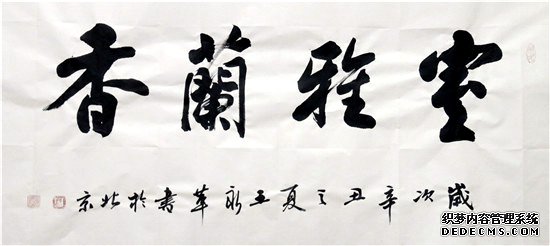 室雅蘭香
歲次辛丑之夏王永書於北京
织梦内容管理系统
DEDECMS.COM